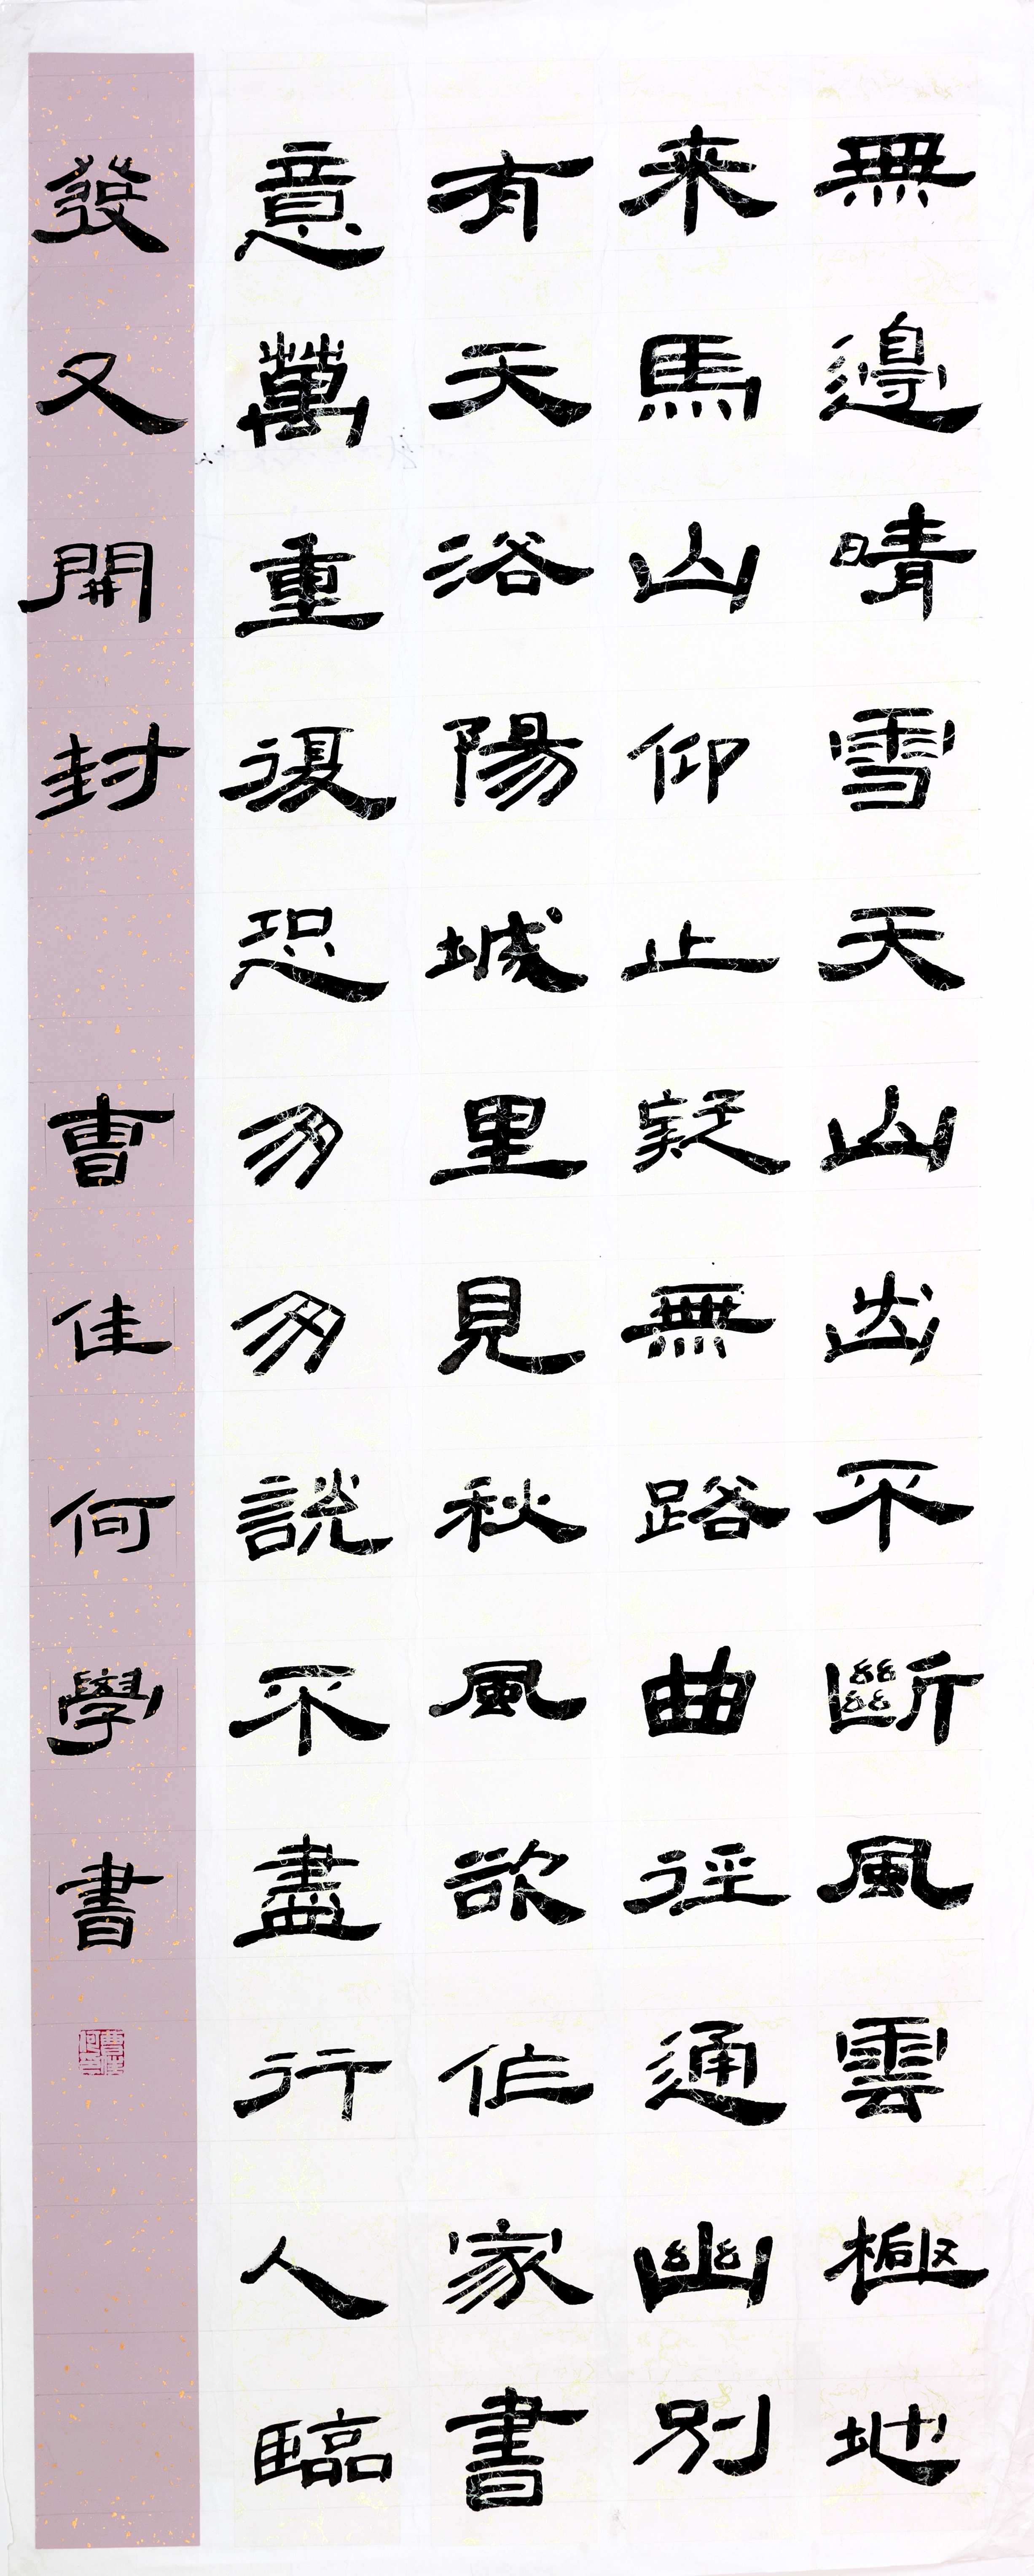 無邊晴雪天山出不斷風雲極地
来馬山仰止疑無路曲徑通幽別
有天洛陽城里見秋風欲作家書
意萬重復恐匆匆説不盡行人臨
發又開封 曹佳何學書
曹佳何印